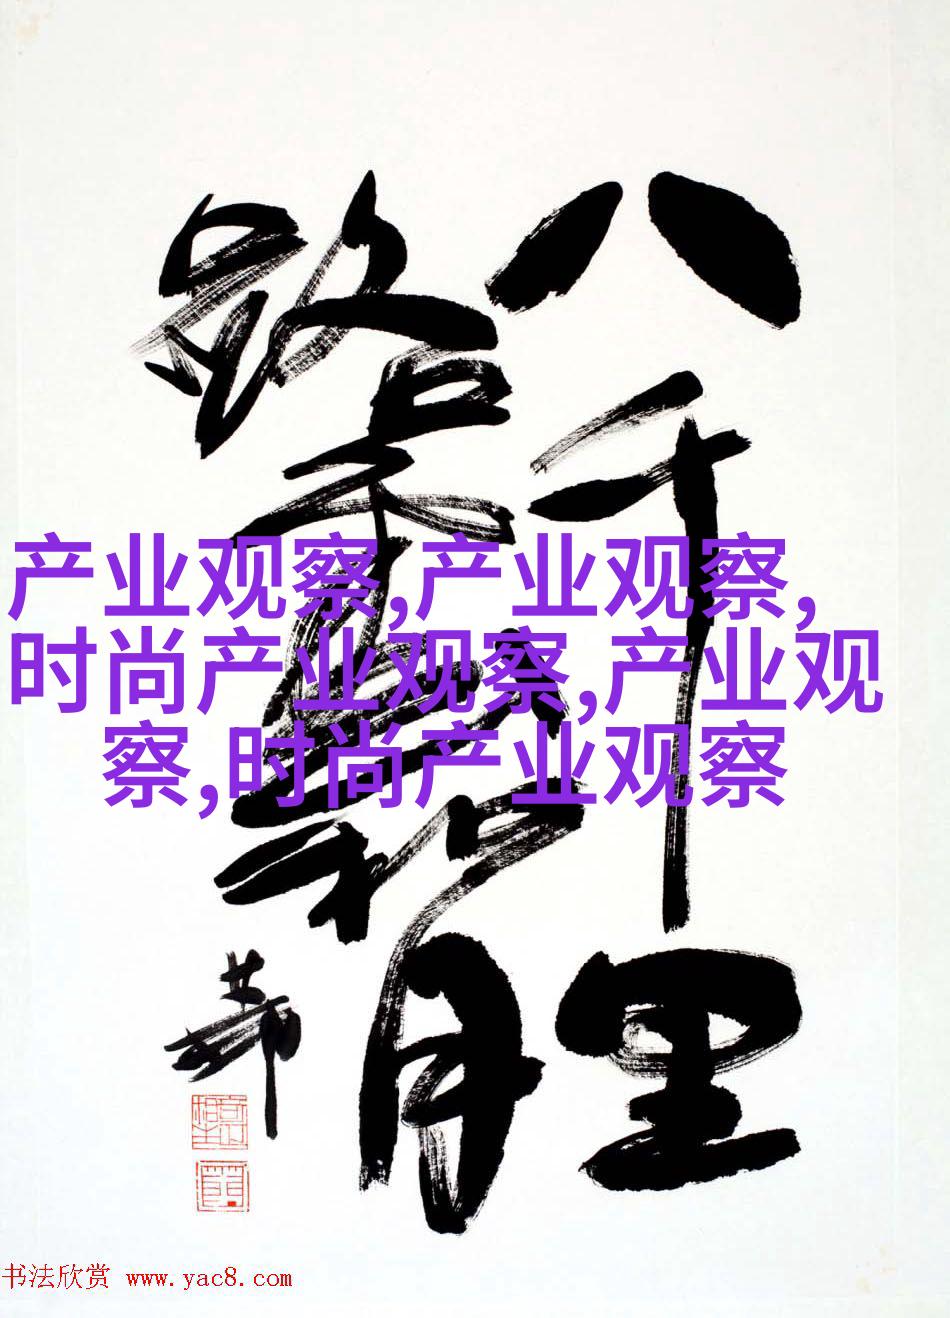 八千里
路雲和月
产业观察,产业观察,
时尚产业观察,产业观
察,时尚产业观察
书法欣赏 www.yac8.com